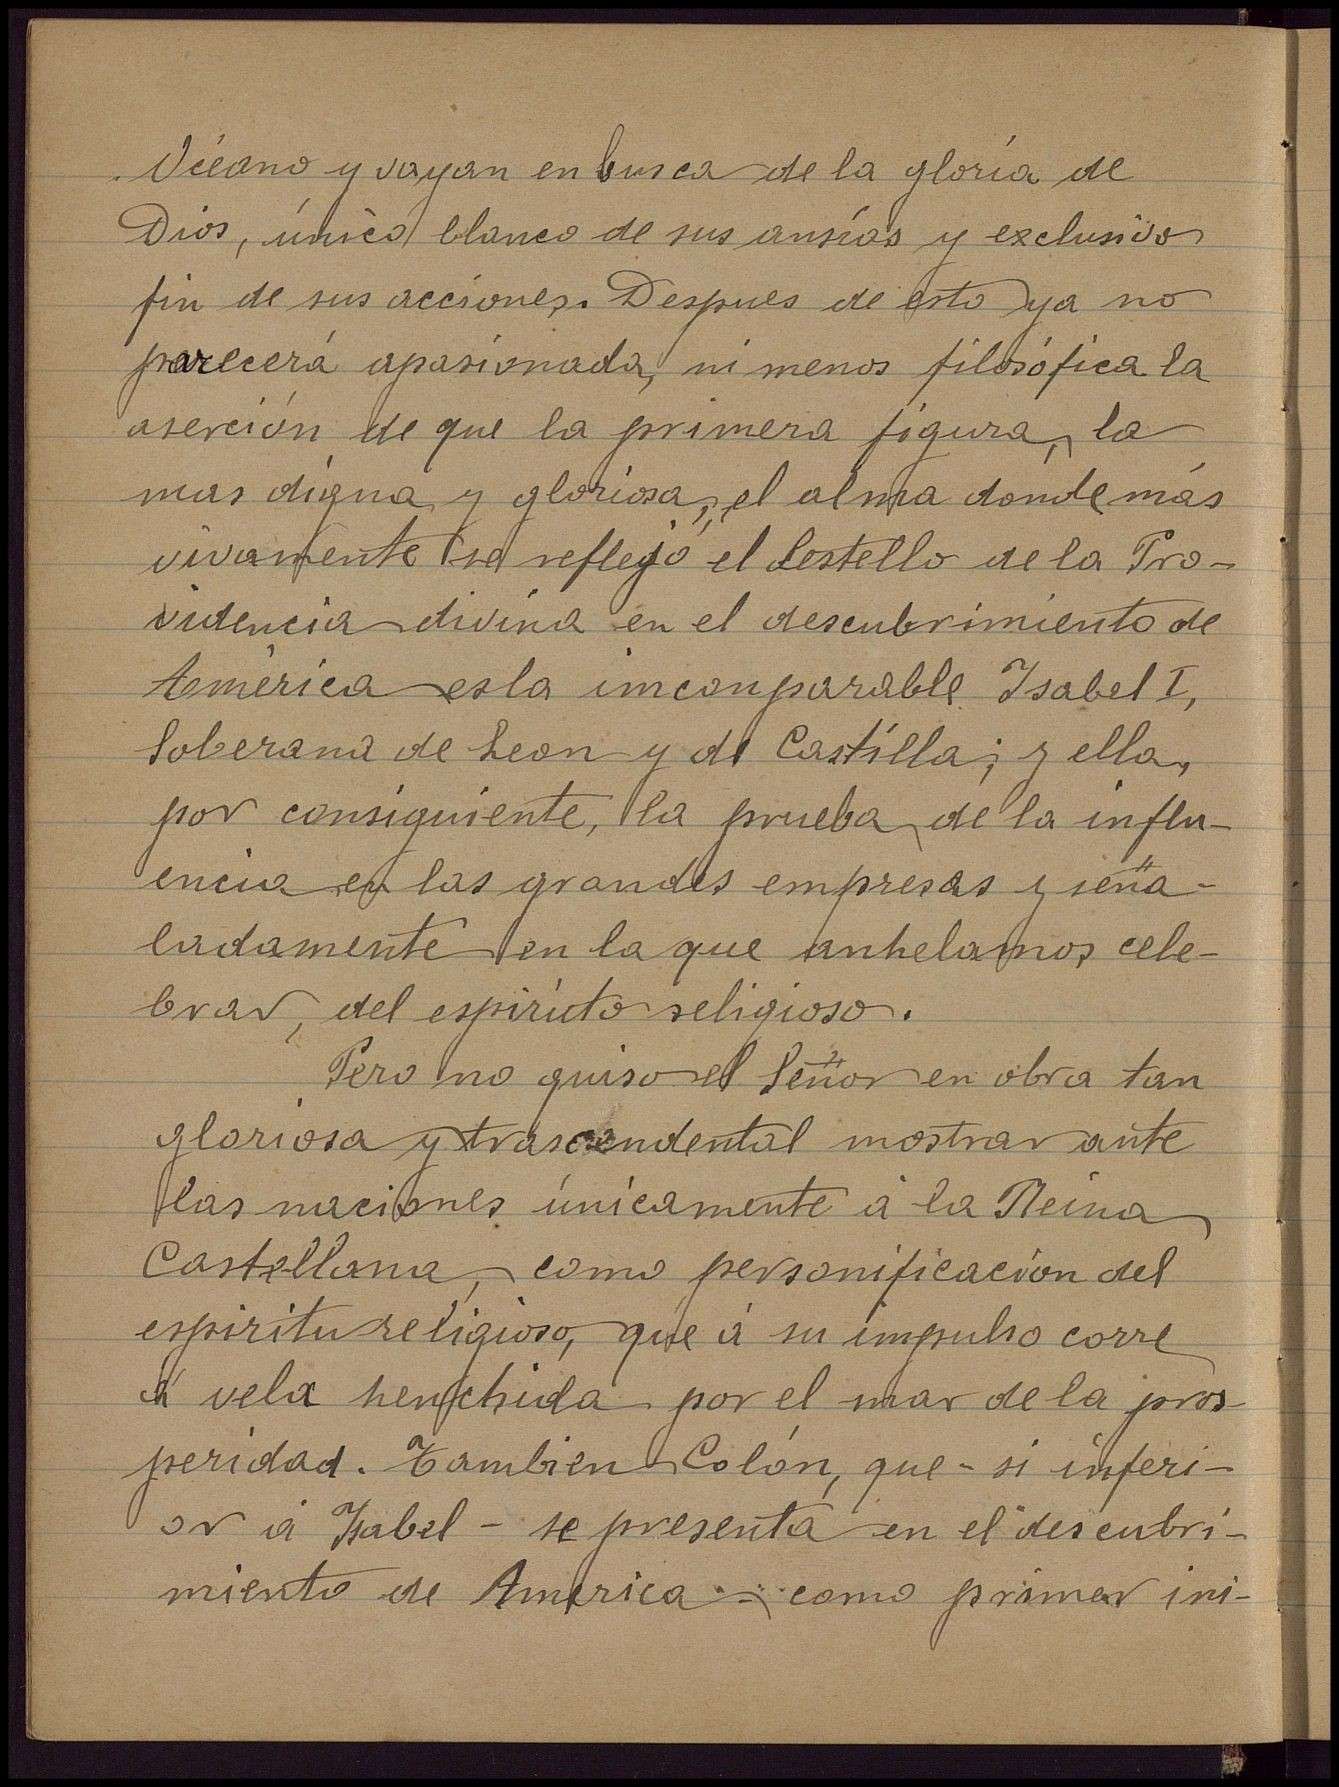 Océano y vayan en busca de la gloria de
Dios, único blanco de sus ansías y exclusivo
fin de sus acciones. Despues de esto ya no
parecerá apasionada, ni menos filosófica la
aserción de que la primera figura, la
mas digna y gloriosa, el alma donde más
vivamente se reflejó el destello de la Pro-
videncia divina en el descubrimiento de
América es la imconparable Isabel I,
Soberana de Leon y de Castilla; y ella,
por consiguiente, la prueba de la influ-
encia en las grandes empresas y seña-
ladamente en la que anhelamos cele-
brar, del espíritu religioso.
Pero no quiso el Señor en obra tan
gloriosa y trascendental mostrar ante
las naciones únicamente á la Reina
Castellana, como personificación del
espiritu religioso, que á su impulso corre
á vela henchida por el mar de la pros-
peridad. Tambien Colón, que - si inferi-
or á Isabel - se presenta en el descubri-
miento de America - como primer ini-